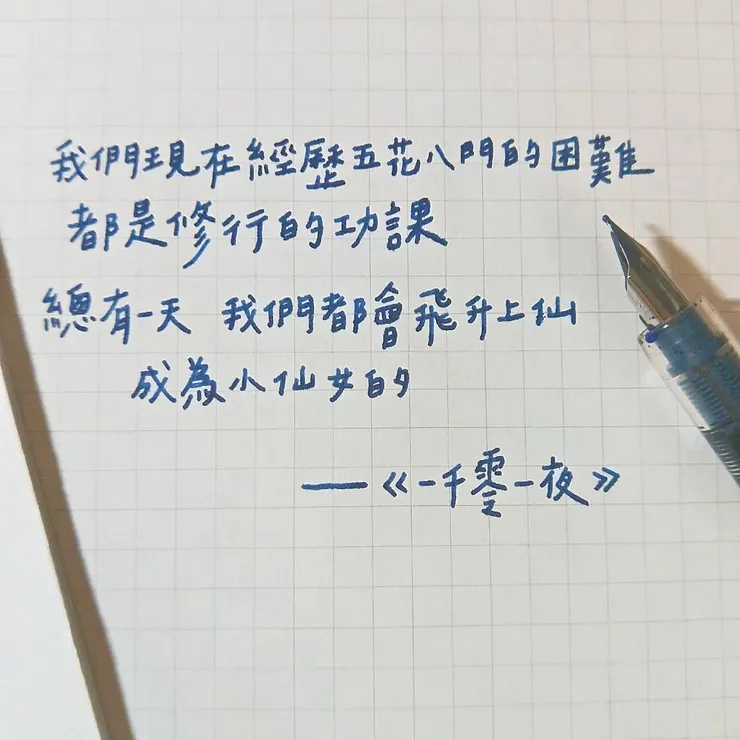 我們現在經歷五花八門的困難
都是修行的功課
總有一天 我們都會飛升上仙
成為小仙女的
——《一千零一夜》